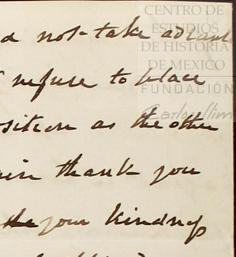 CENTRO DE
ESTUDIOS
DE HISTORIA
DE MEXICO
FUNDACIÓN
d not take advant
refuse to place
osition as the other
thank you
your kindness